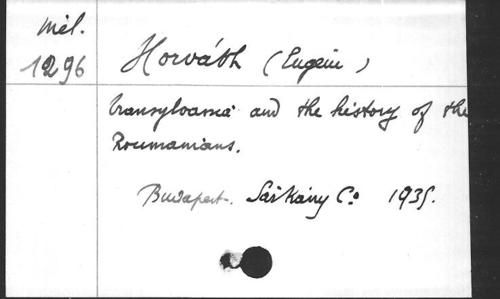 Mél.
1296
Horváth (Eugène)
Transylvania and the history of the
Roumanians.
Budapest. Sárkány Co 1935.